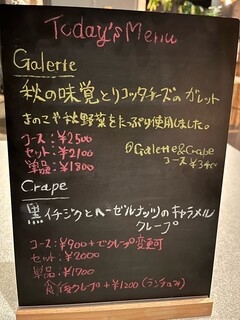 Today's Menu
Galette
秋の味覚とリコッタチーズのガレット
きのこや秋野菜をたっぷり使用しました。
コース：¥2500
セット：¥2100
単品：¥1800
Galette&Crape
コース ¥3400
Crape
黒イチジクとヘーゼルナッツのキャラメル
クレープ
コース：¥900+でクレープ変更可
セット：¥2000
単品：¥1700
食後クレープ+¥1200(ランチのみ)